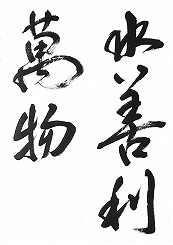 水善利
萬物